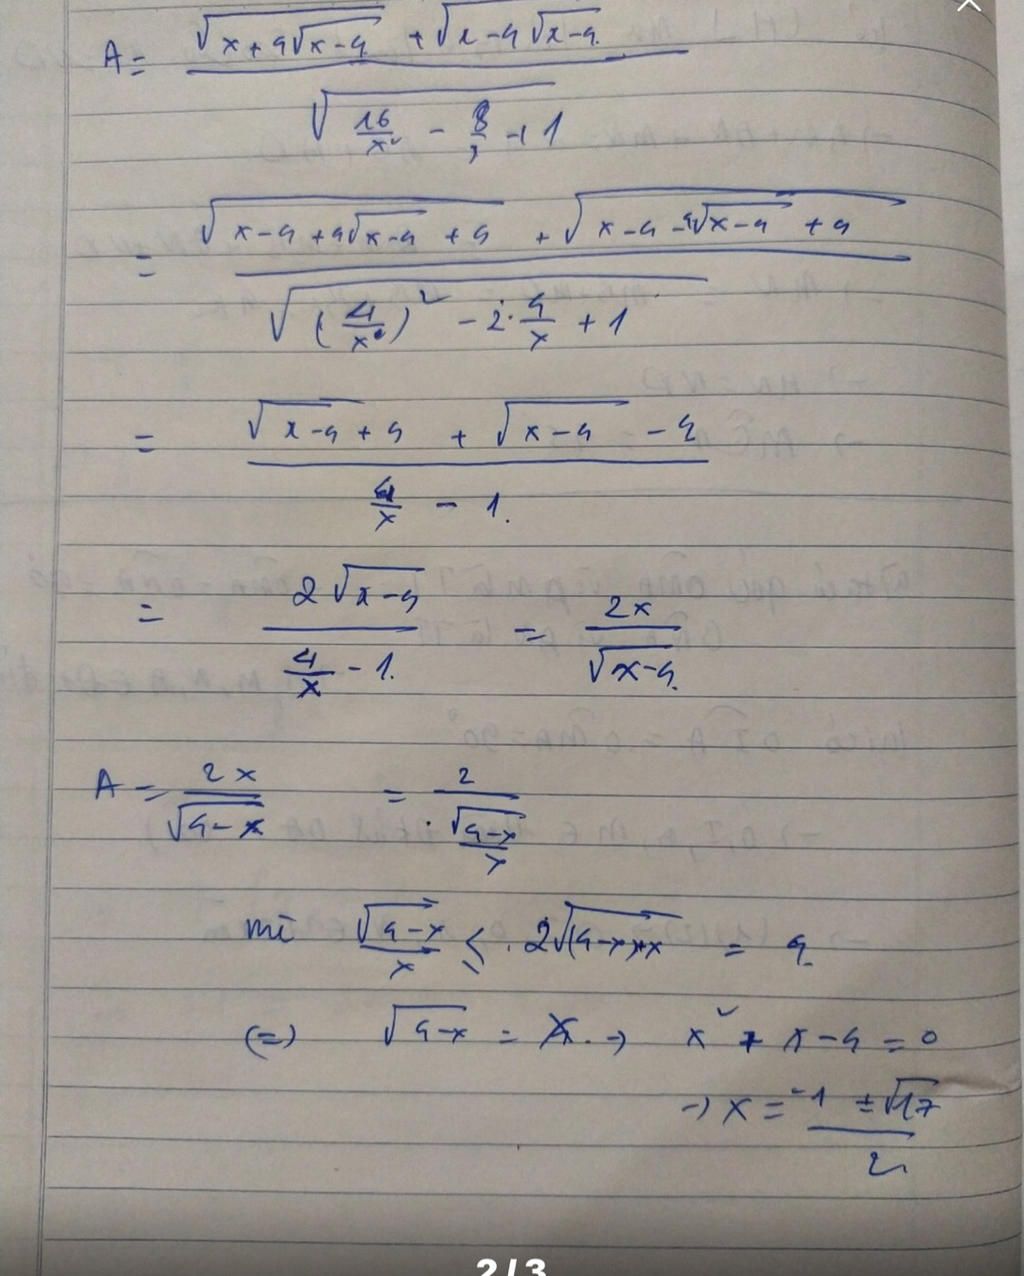 A = (√(x + 4√(x-4)) + √(x - 4√(x-4))) / √(16/x² - 8/x + 1)
= (√(x-4+4√(x-4) + 4) + √(x-4-4√(x-4) + 4)) / √((4/x)² - 2·4/x + 1)
= (√(x-4) + 4 + √(x-4) - 2) / (4/x - 1.)
= 2√(x-4) / (4/x - 1.) = 2x / √(x-4)
A = 2x / √(4-x) = 2 / (√(4-x) / x)
mì √(4-x) / x ≤ 2√((4-x)+x) = 4
(=) √(4-x) = x → x² + x - 4 = 0
→ x = (-1 ± √17) / 2
2/3